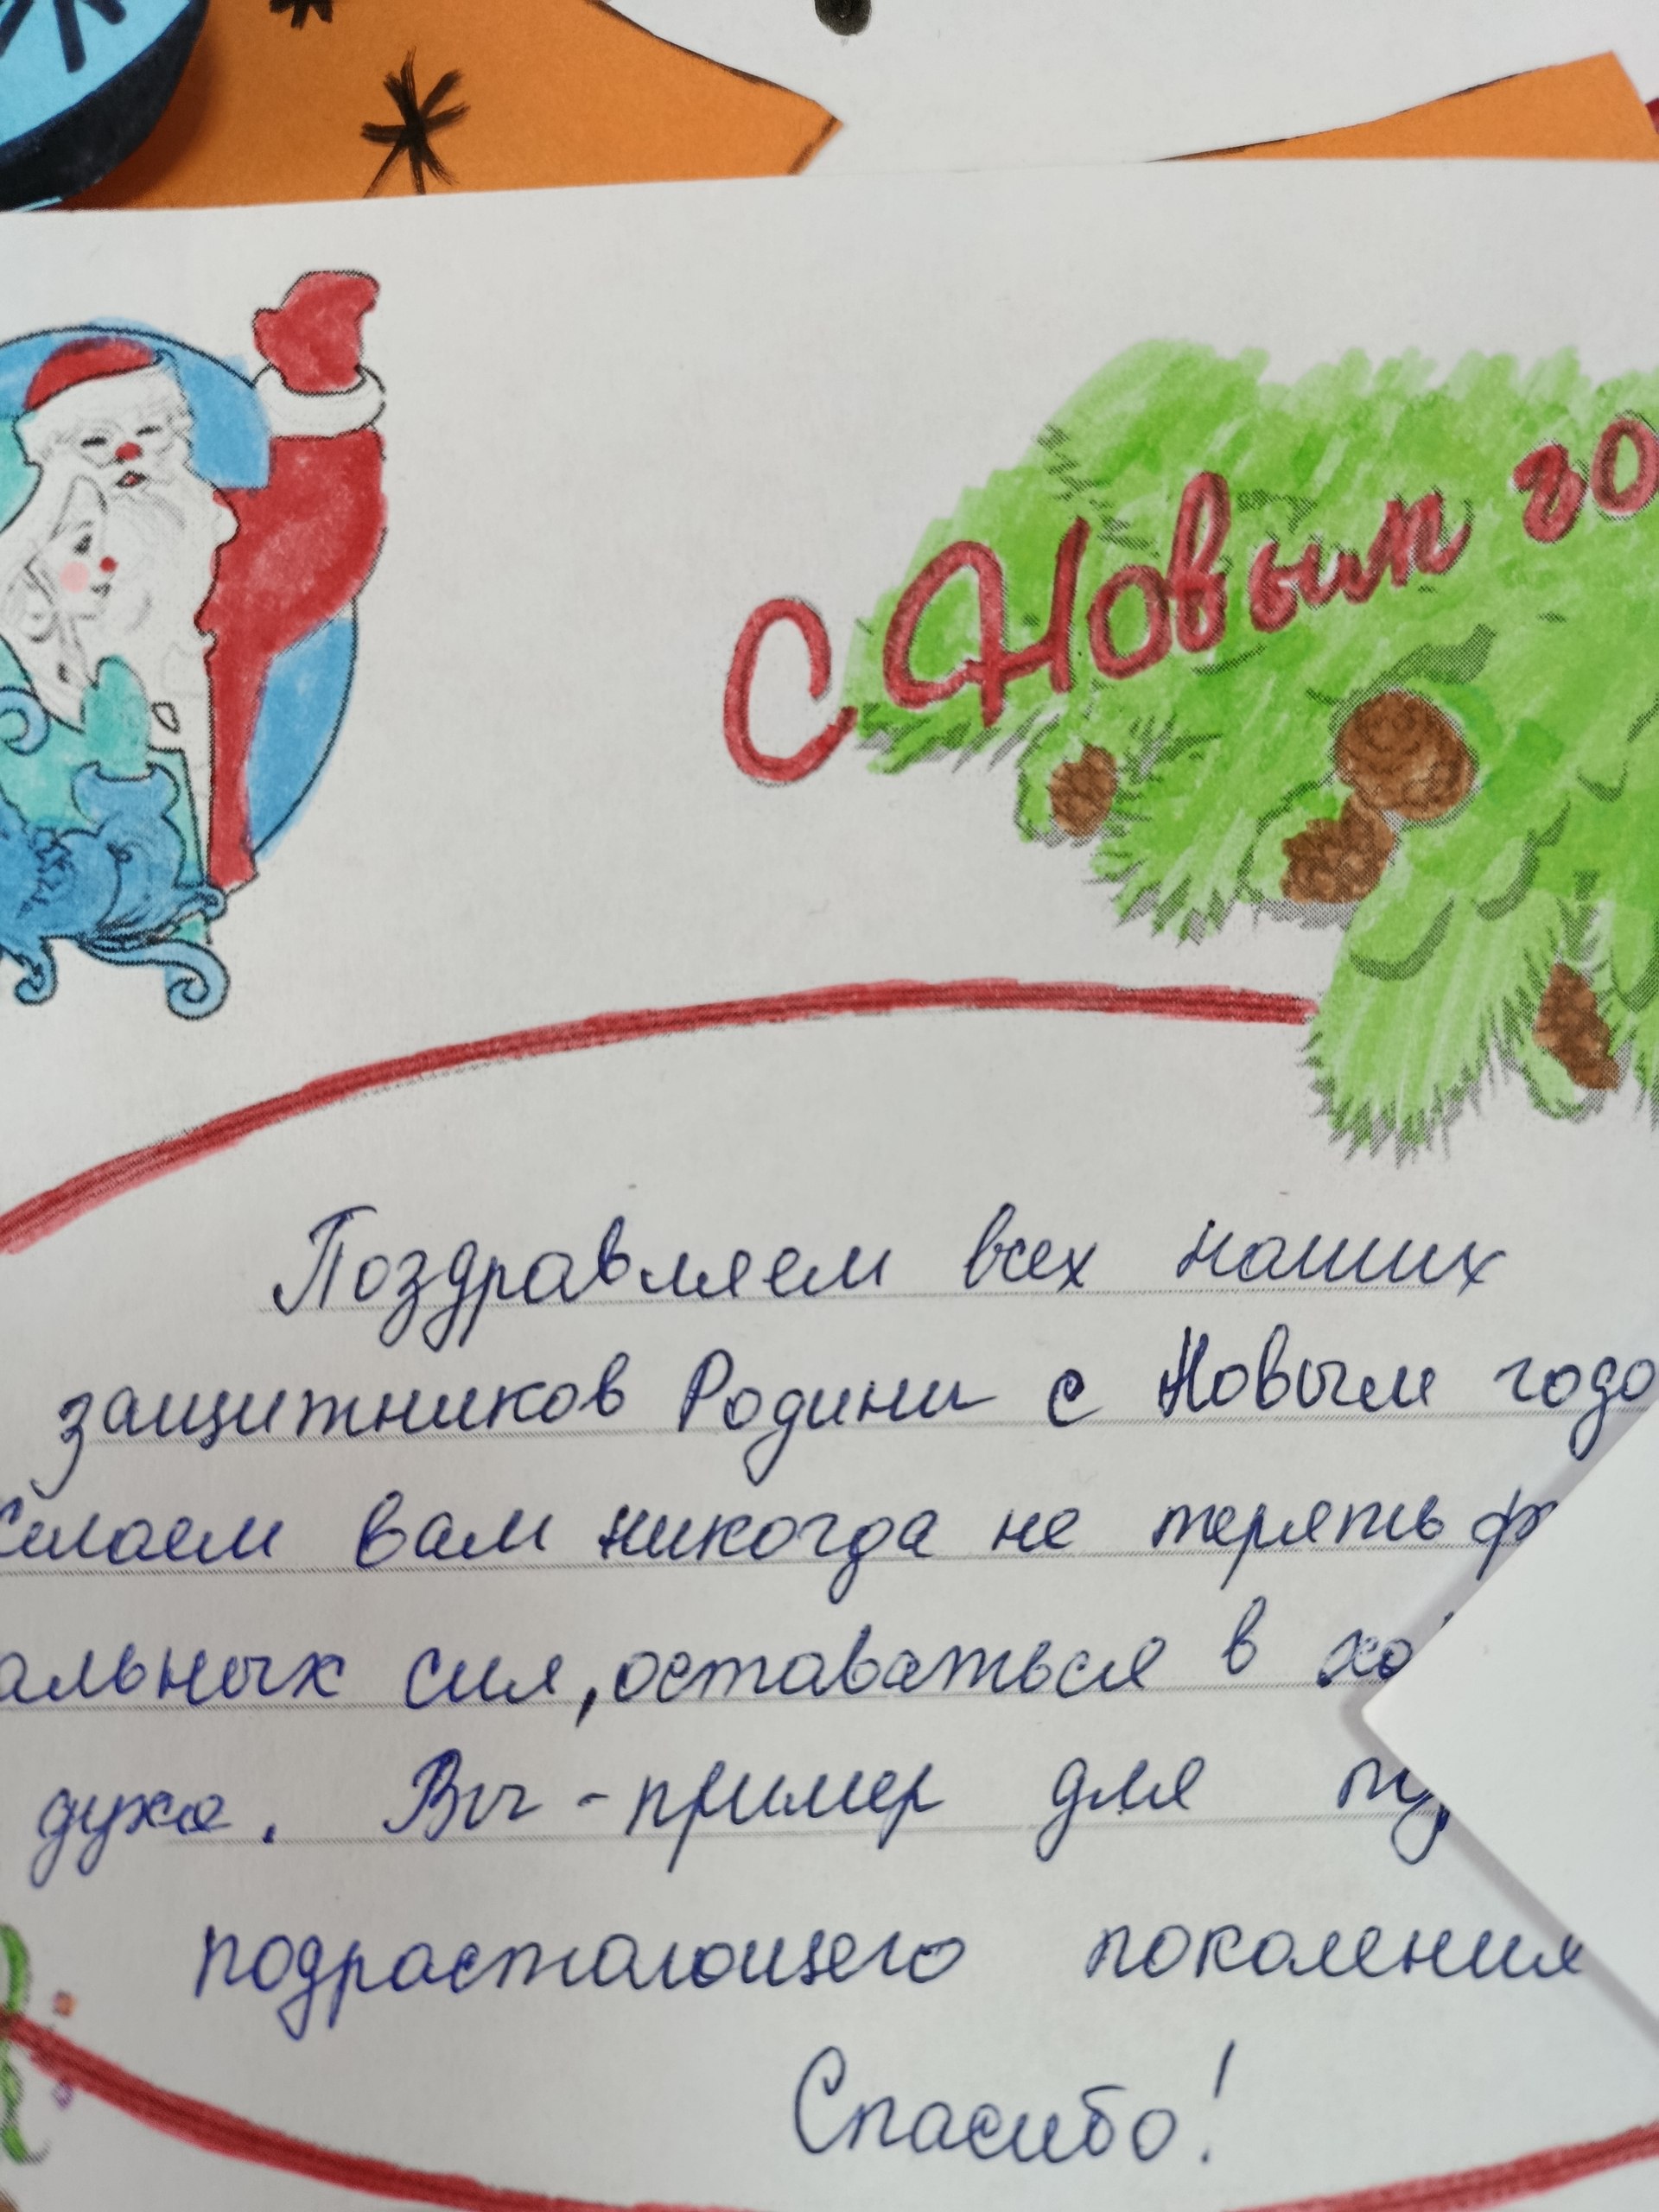 С Новым го
Поздравляем всех наших
защитников Родини с Новым годо
елаем вам никогда не терять ф
альных сил, оставаться в хо
духа. Вы - пример для
подрастающего поколения
Спасибо!